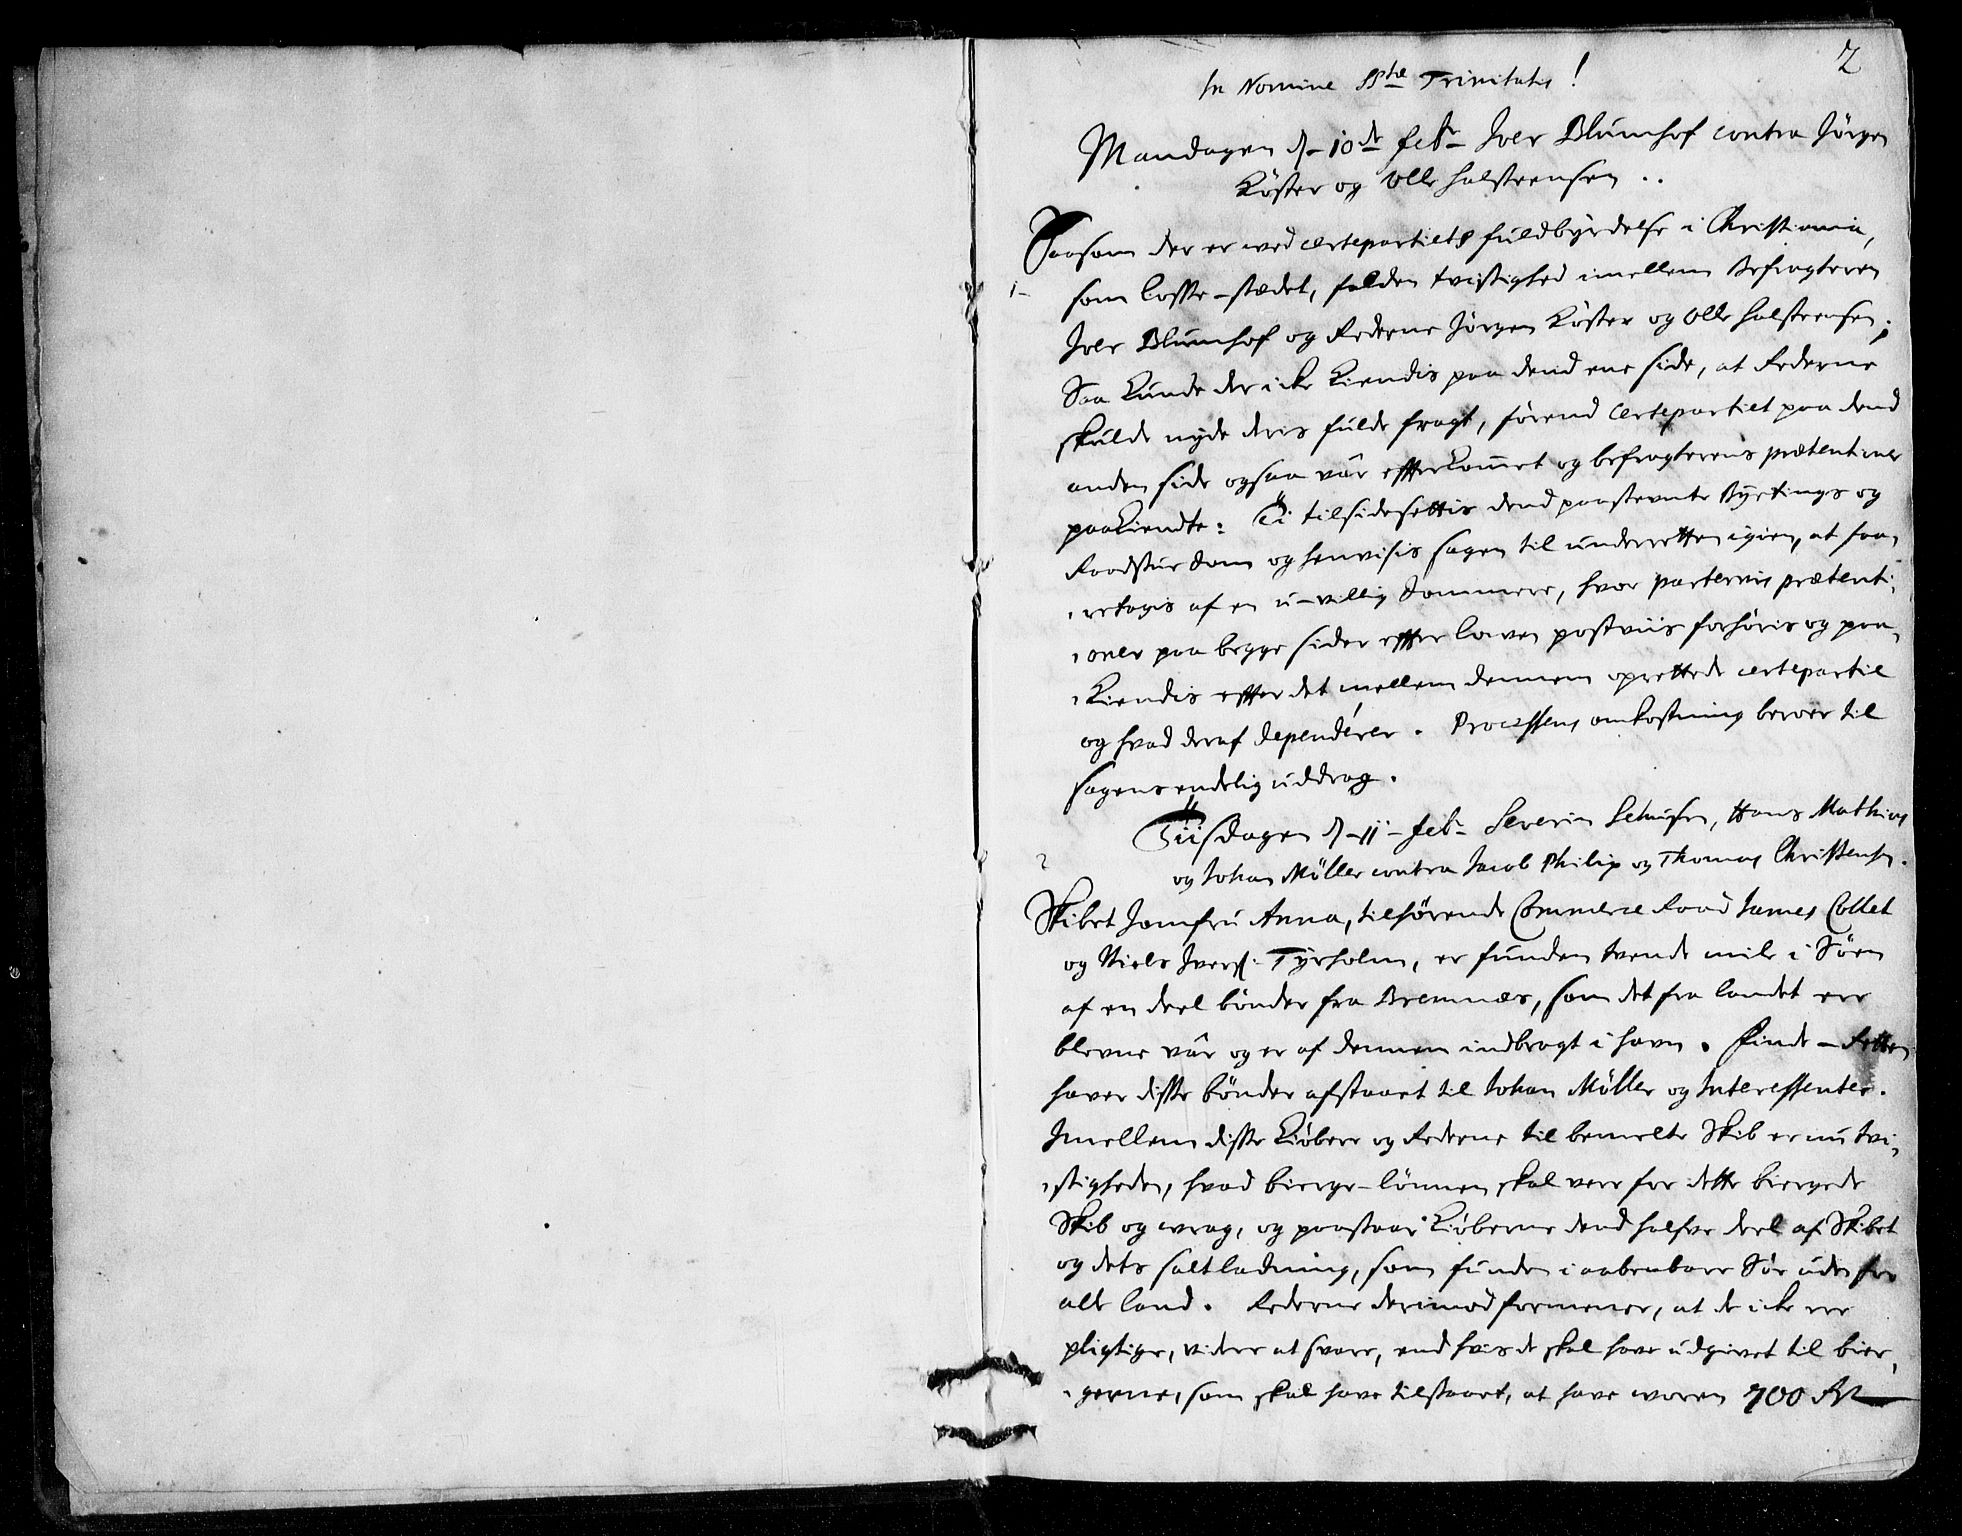 2
In Nomine SStæ Trinitatis!
Mandagen d. 10de Febr. Iver Blumhof contra Jörgen
Köster og Olle Halsteensen..
1
Saasom der er ved certepartiets fuldbyrdelse i Christiania,
som losse-stædet, falden tvistighed imellem Befragteren
Iver Blumhof og Rederne Jörgen Köster og Olle Halsteensen;
Saa kunde der icke kiendis paa dend ene side, at Rederne
skulde nyde deris fulde fragt, förend Certepartiet paa dend
anden side ogsaa vår efterkommet og befragterens prætentioner
paakiendte: Ti tilsidesettis dend paastevnte Byetings og
Raadstue Dom og henvisis sagen til underretten igien, at for-
retagis af en u-villig Dommere, hvor parternis prætenti-
oner paa begge sider effter lowen postviis forhöris og paa-
kiendis effter det mellem dennem oprettede certepartie
og hvad deraf dependerer. Processens omkostning beroer til
sagens endelig uddrag.
2
Tiisdagen d. 11 Febr. Severin Hans Mathias
og Johan Möller contra Jacob Philip og Thomas Christensen.
Skibet Jomfru Anna, tilhörende Commerce Raad James Collet
og Niels Ivers. Tyrholm, er funden tvende mile i Söen
af en deel bönder fra Bremnæs, som det fra landet ere
blevne vår og er af dennem indbragt i havn. Finde-Retten
haver disse bönder afstaaet til Johan Möller og Interessenter.
Imellem disse Kiöbere og Rederne til bemelte Skib er nu tvi-
stigheden, hvad bierge-lönnen skal vere for dette biergede
Skib og wrag, og paastaar Kiöberne dend halfve deel af Skibet
og dets saltladning, som funden i aabenbare Söe uden for
alt land. Rederne derimod formener, at de icke ere
pligtige, videre at svare, end hvis de skal have udgivet til bier-
gerne, som skal have tilstaaet, at have woren 700 Rd